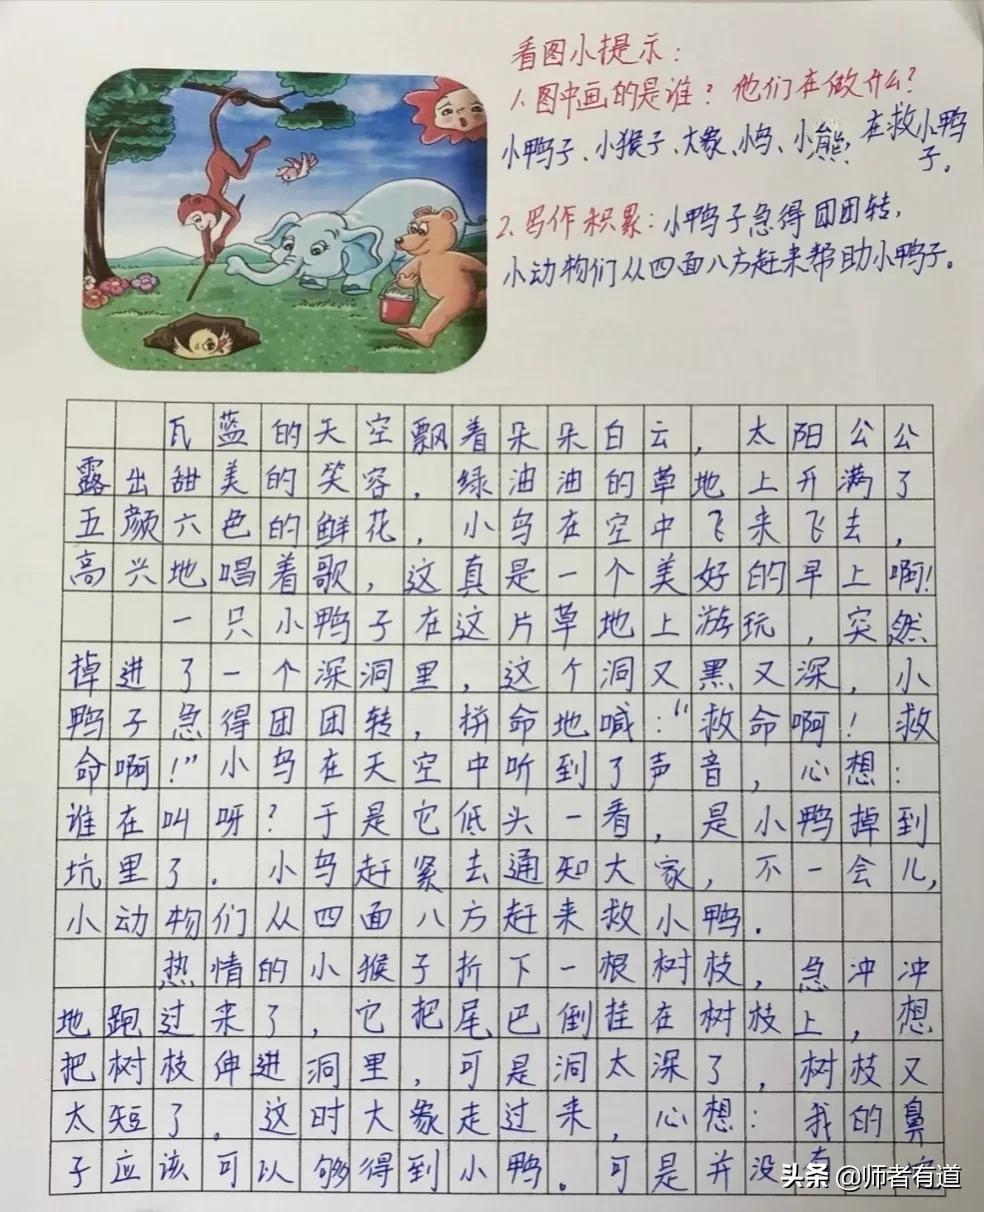 看图小提示：
1、图中画的是谁？他们在做什么？
小鸭子、小猴子、大象、小鸟、小熊，在救小鸭
子。
2、写作积累：小鸭子急得团团转，
小动物们从四面八方赶来帮助小鸭子。
瓦蓝的天空飘着朵朵白云，太阳公公
露出甜美的笑容，绿油油的草地上开满了
五颜六色的鲜花，小鸟在空中飞来飞去，
高兴地唱着歌，这真是一个美好的早上啊！
一只小鸭子在这片草地上游玩，突然
掉进了一个深洞里，这个洞又黑又深，小
鸭子急得团团转，拼命地喊：“救命啊！救
命啊！”小鸟在天空中听到了声音，心想：
谁在叫呀？于是它低头一看，是小鸭掉到
坑里了．小鸟赶紧去通知大家，不一会儿，
小动物们从四面八方赶来救小鸭．
热情的小猴子折下一根树枝，急冲冲
地跑过来了，它把尾巴倒挂在树枝上，想
把树枝伸进洞里，可是洞太深了，树枝又
太短了。这时大象走过来，心想：我的鼻
子应该可以够得到小鸭。可是并没
头条 @师者有道